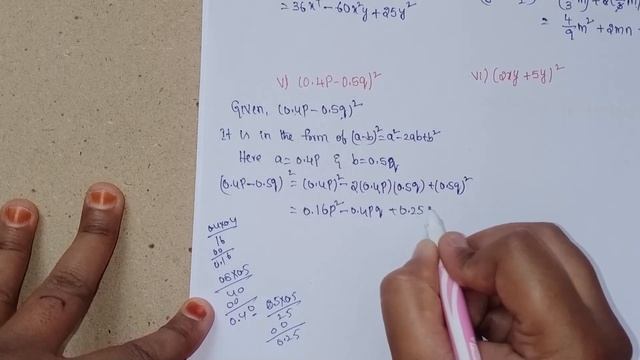 = 36x⁴ - 60x²y + 25y²
= 4/9 m² + 2mn -
V) (0.4P - 0.5q)²
VI) (2xy + 5y)²
Given, (0.4P - 0.5q)²
It is in the form of (a-b)² = a² - 2ab + b²
Here a = 0.4P & b = 0.5q
(0.4P - 0.5q)² = (0.4P)² - 2(0.4P)(0.5q) + (0.5q)²
= 0.16P² - 0.4Pq + 0.25
0.4x0.4
16
00
0.16
0.8x0.5
40
00
0.40
0.5x0.5
25
00
0.25